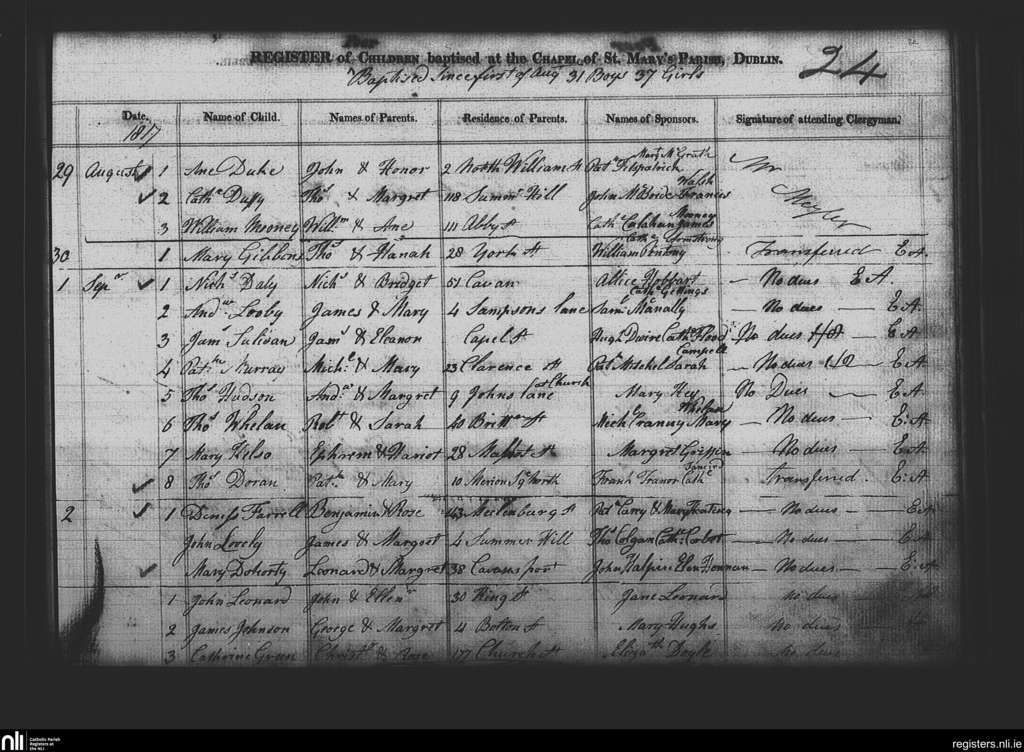 REGISTER of CHILDREN baptised at the CHAPEL of ST. MARY'S PARISH, DUBLIN.
24
Baptised Since first of Aug 31 Boys 37 Girls
Date. Name of Child. Names of Parents. Residence of Parents. Names of Sponsors. Signature of attending Clergyman.
1817
Mary McGrath
29 August 1 Ane Duke John & Honor 2 North William St Pat Fitzpatrick Mr
Walsh
2 Cathe Duffy Thos & Margret 118 Summr Hill John McBride Frances
Mooney
3 William Mooney Willm & Ane 111 Abby St Cathe Calahan James
Cathe Armstrong
30 1 Mary Gibbons Thos & Hanah 28 York St William Transferred E.A.
1 Sepr 1 Nichs Daly Nichs & Bridget 51 Cavan Allice No dues E A.
Cathe Gittings
2 Andw Looby James & Mary 4 Sampsons lane Saml McAnally No dues E.A
3 Jams Sulivan Jams & Eleanor Capel St Hugh Dwire Cathe Flood No dues E A
Campell
4 Patk Murray Michl & Mary 23 Clarence St Patk Mitchel Sarah No dues E.A
at Church
5 Thos Hudson Andw & Margret 9 Johns lane Mary Hey No Dues E.A
Whelan
6 Thos Whelan Robt & Sarah 40 Brittn St Mich Mary No dues E.A
7 Mary Kelso Ephrem & Hariot 28 St Margret Griffin No dues E.A
8 Thos Doran Patk & Mary 10 Merion Sqr North Frank Tranor Cathe Transferred. E.A
2 1 Deniss Farrell Benjamin & Rose 43 Meclenburg St Patk Carry & Mary No dues E.A
John Lovely James & Margret 4 Summer Hill Thos Colgan Cathe No dues E.A
Mary Dohorty Leonard & Margret 38 Cavans port John Halpin Elen No dues E.A
1 John Leonard John & Ellen 30 King St Jane Leonard No dues
2 James Johnson George & Margret 4 Botton St Mary Hughs No dues
3 Cathrine Green Christr & Rose 177 Church St Elizath Doyle No dues
nli Catholic Parish
Registers at
the NLI
registers.nli.ie